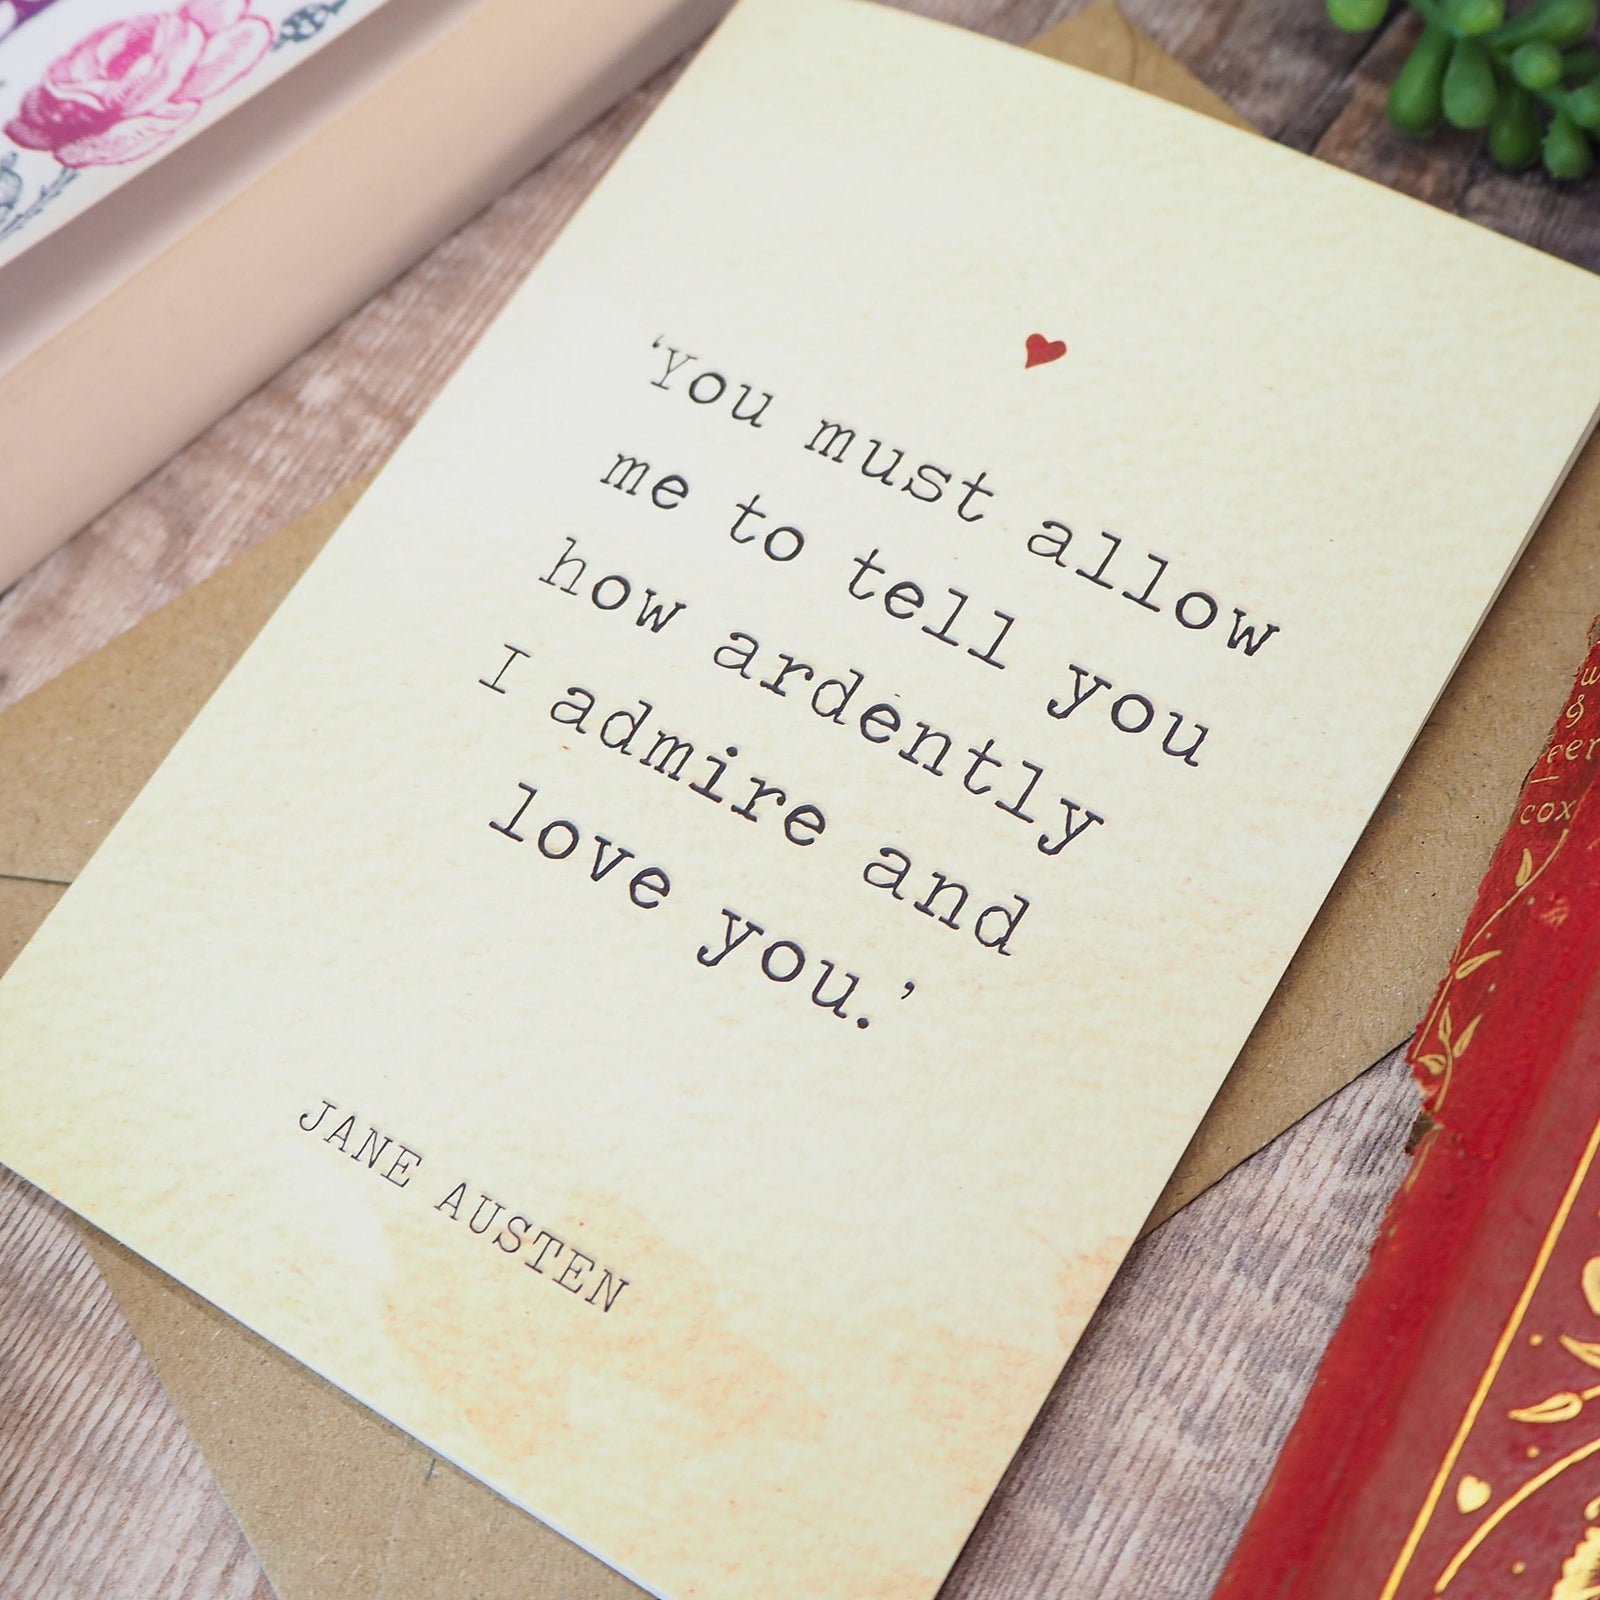 ‘You must allow
me to tell you
how ardently
I admire and
love you.’
JANE AUSTEN
&
COX